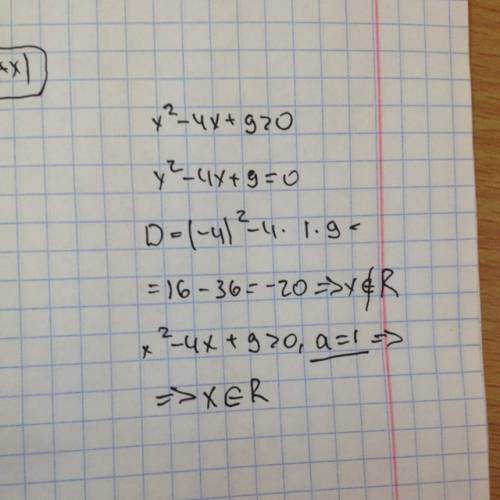 x² - 4x + 9 > 0
x² - 4x + 9 = 0
D = (-4)² - 4 · 1 · 9 =
= 16 - 36 = -20 => x ∉ R
x² - 4x + 9 > 0, a = 1 =>
=> x ∈ R